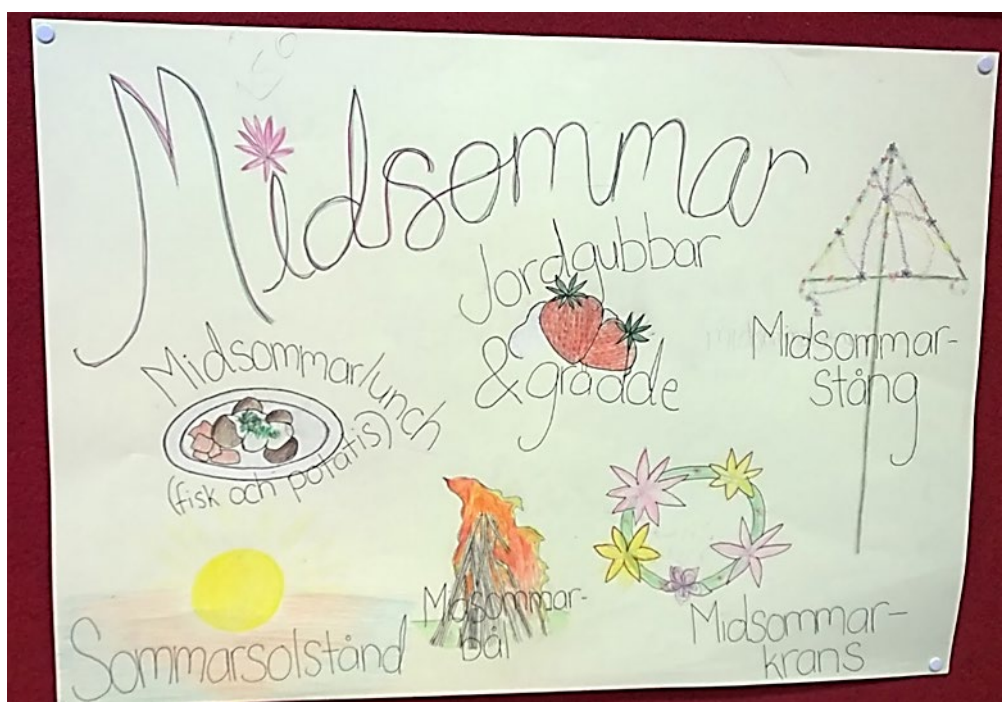 Midsommar
Jordgubbar
& grädde
Midsommar-
stång
Midsommarlunch
(fisk och potatis)
Sommarsolstånd
Midsommar-
bål
Midsommar-
krans